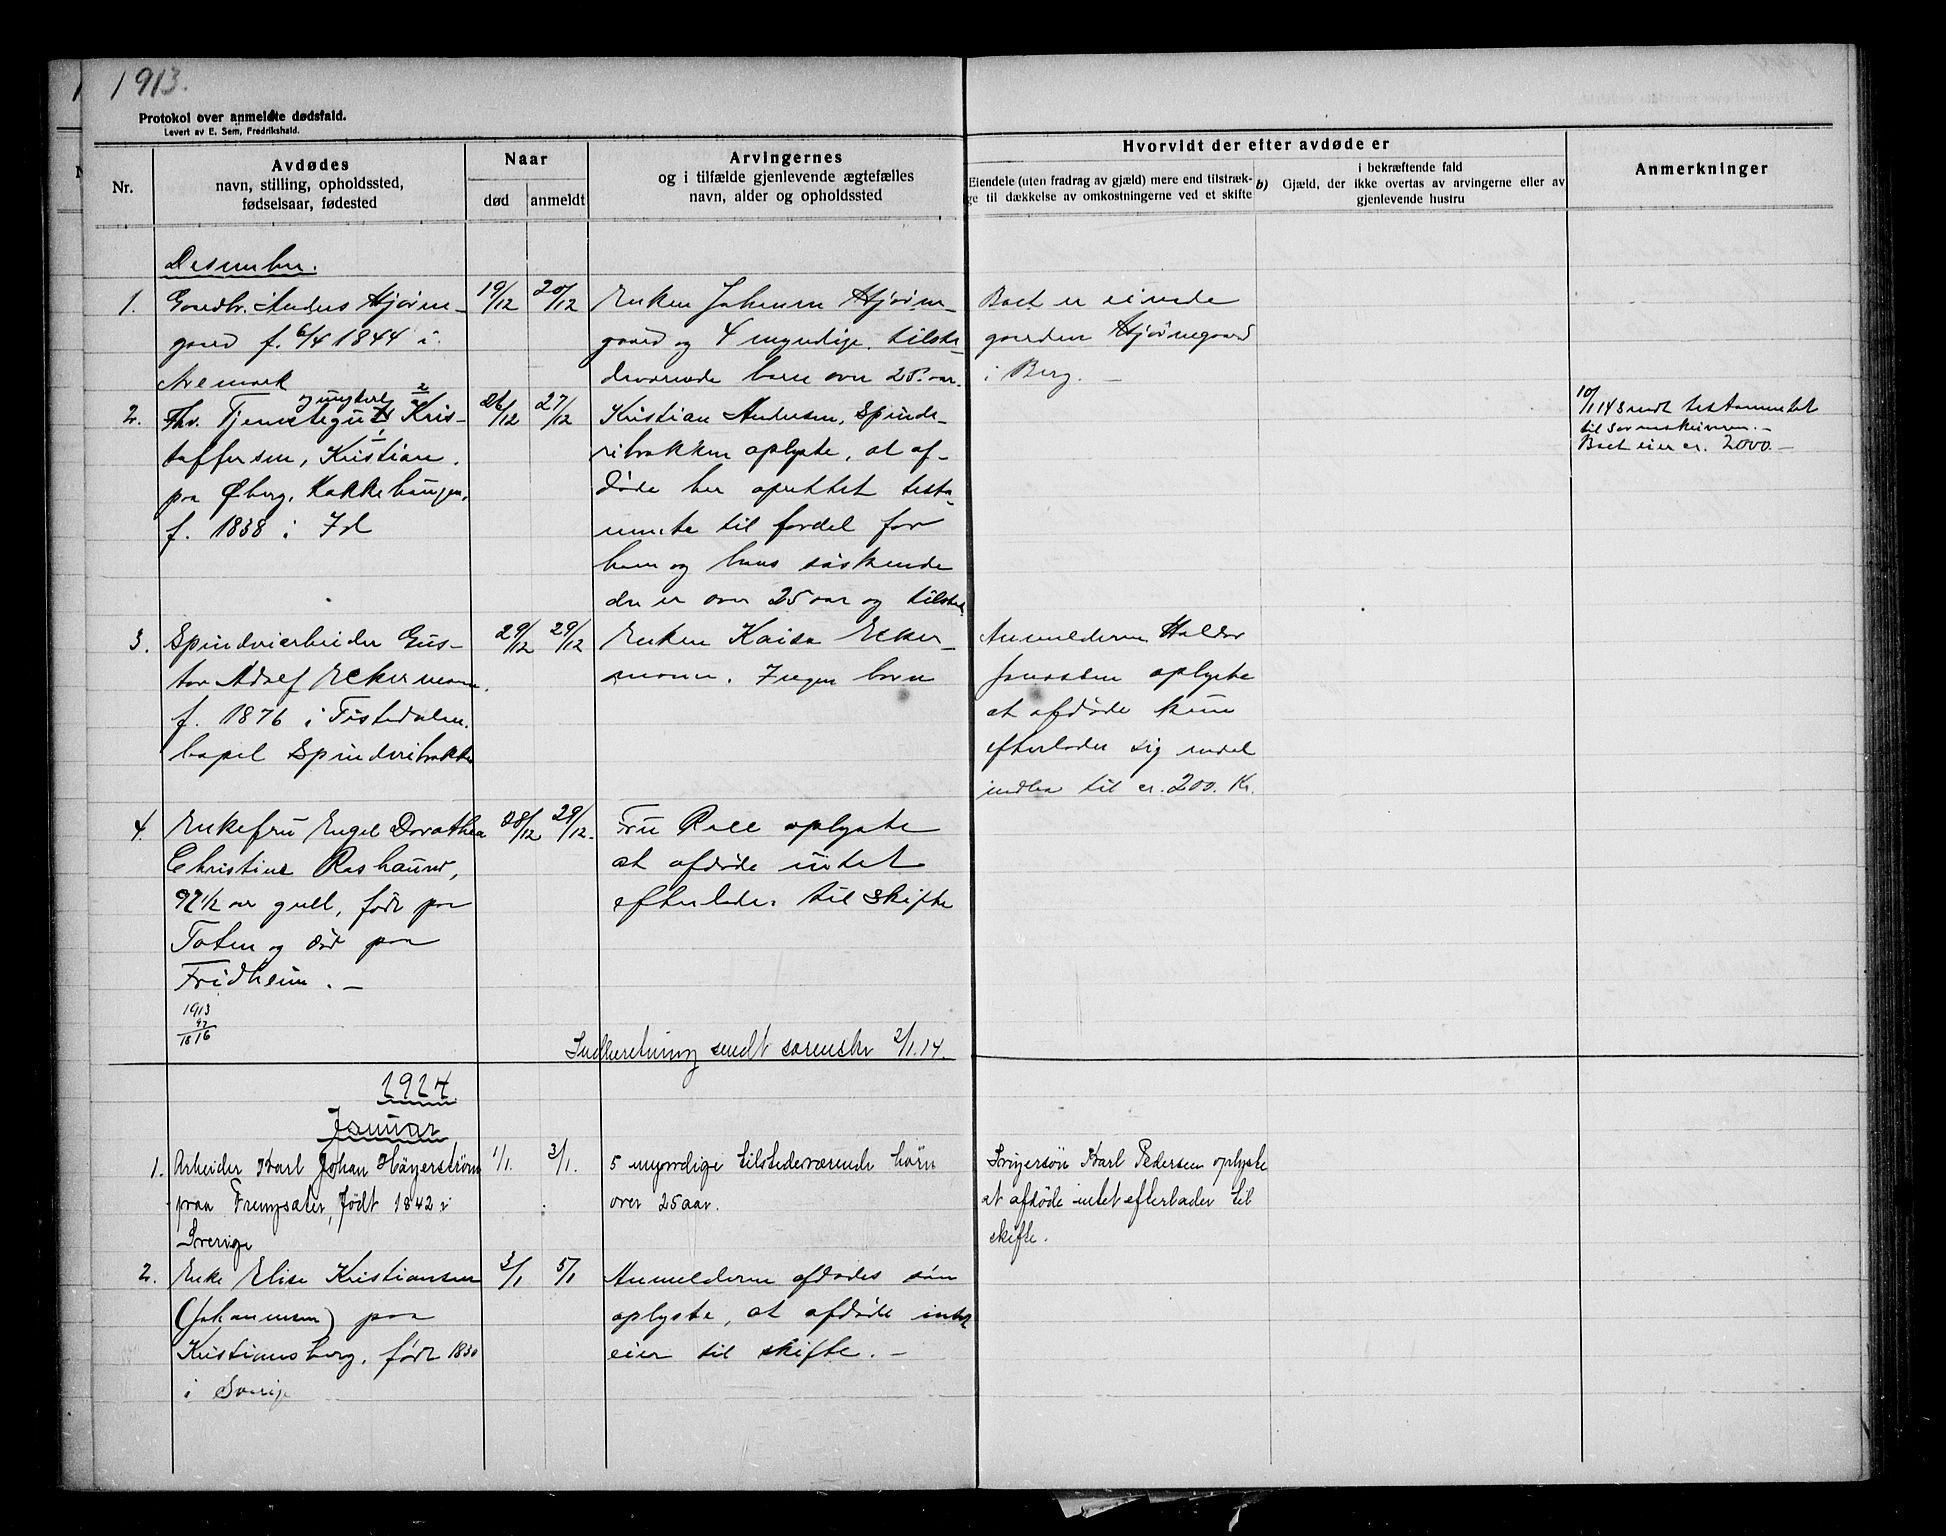 1913.
Protokol over anmeldte dødsfald.
Levert av E. Sem, Fredrikshald.
Nr.
Avdødes
navn, stilling, opholdssted,
fødselsaar, fødested
Naar
død
anmeldt
Arvingernes
og i tilfælde gjenlevende ægtefælles
navn, alder og opholdssted
Hvorvidt der efter avdøde er
Eiendele (uten fradrag av gjæld) mere end tilstræk-
ge til dækkelse av omkostningerne ved et skifte
b)
i bekræftende fald
Gjæld, der ikke overtas av arvingerne eller av
gjenlevende hustru
Anmerkninger
Desember.
1. Gaardbr. Anders Hjørne-
gaard f. 6/4 1844 i
Aremark
19/12 20/12
Enken Johanne Hjørne-
gaard og 4 myndige, tilste-
deværende barn over 25 aar.
Boet er eiende
gaarden Hjørnegaard
i Berg. —
2. Fhv. Tjenestegut Kris-
toffersen, Kristian
paa Øberg, Kakkehaugen,
f. 1838 i Id
26/12 27/12
Kristian Andersen, Spinde-
ribakken oplyste, at af-
døde har oprettet testa-
mente til fordel for
ham og hans søskende
der er over 25 aar og tilsted
10/1 14 sendt testamentet
til sorenskriveren. —
Boet eier ca. 2000. —
3. Spinderiarbeider Gus-
tav Adolf Eckermann,
f. 1876 i Tistedalen,
bopel Spinderibakken
29/12 29/12
Enken Kaisa Ecker-
mann. Ingen barn
Anmelderen Halvor
Jonassen oplyste
at afdøde kun
efterlader sig endel
indbo til ca. 200. Kr.
4. Enkefru Engel Dorathea
Christine Rashaund,
97 1/2 aar gell, født paa
Toten og død paa
Fridheim. —
1913
97
1816
28/12 29/12.
Fru Roll oplyste
at afdøde intet
efterlader til skifte
Indberetning sendt sorenskr 2/1.14.
1914
Januar
1. Arbeider Karl Johan Hägerström
paa Trempsater, født 1842 i
Sverige
1/1. 3/1.
5 myndige tilstedeværende børn
over 25 aar.
Svigersøn Karl Pedersen oplyste
at afdøde intet efterlader til
skifte.
2. Enke Elise Kristiansen
(Johannesen) paa
Kristiansberg, født 1830
i Sverige
3/1 5/1
Anmelderen afdødes søn
oplyste, at afdøde intet
eier til skifte. —